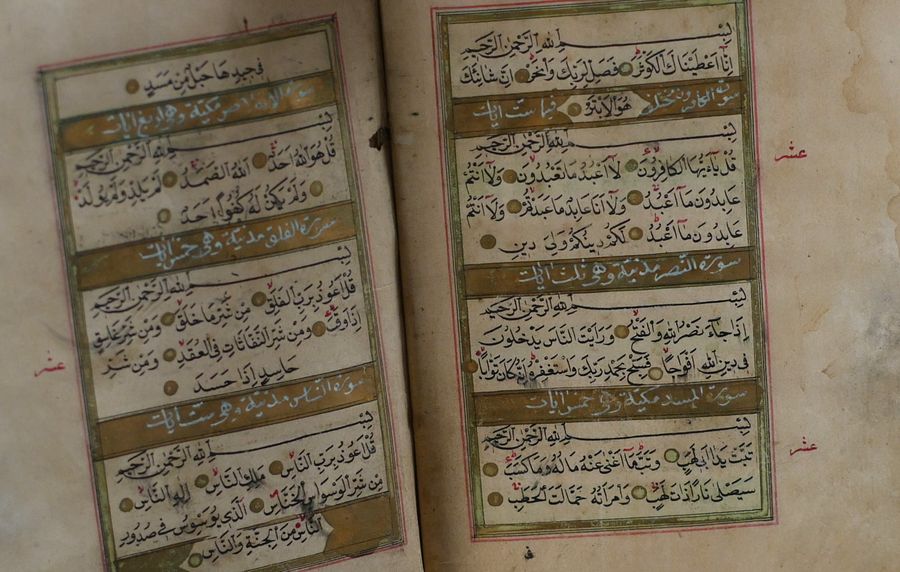 بسم الله الرحمن الرحيم
إنا أعطيناك الكوثر فصل لربك وانحر إن شانئك
سورة الكافرون هو الأبتر فيها ست آيات
بسم الله الرحمن الرحيم
عشر
قل يا أيها الكافرون لا أعبد ما تعبدون ولا أنتم
عابدون ما أعبد ولا أنا عابد ما عبدتم ولا أنتم
عابدون ما أعبد لكم دينكم ولي دين
سورة النصر مدنية وهو ثلث آيات
بسم الله الرحمن الرحيم
إذا جاء نصر الله والفتح ورأيت الناس يدخلون
في دين الله أفواجا فسبح بحمد ربك واستغفره إنه كان توابا
سورة المسد مكية وهي خمس آيات
بسم الله الرحمن الرحيم
عشر
تبت يدا أبي لهب وتب ما أغنى عنه ماله وما كسب
سيصلى نارا ذات لهب وامرأته حمالت الحطب
في جيدها حبل من مسد
سورة الإخلاص مكية وهو أربع آيات
بسم الله الرحمن الرحيم
قل هو الله أحد الله الصمد لم يلد ولم يولد
ولم يكن له كفوا أحد
سورة الفلق مدنية وهي خمس آيات
بسم الله الرحمن الرحيم
قل أعوذ برب الفلق من شر ما خلق ومن شر غاسق
إذا وقب ومن شر النفاثات في العقد ومن شر
عشر
حاسد إذا حسد
سورة الناس مدنية وهي ست آيات
بسم الله الرحمن الرحيم
قل أعوذ برب الناس ملك الناس إله الناس
من شر الوسواس الخناس الذي يوسوس في صدور
الناس من الجنة والناس